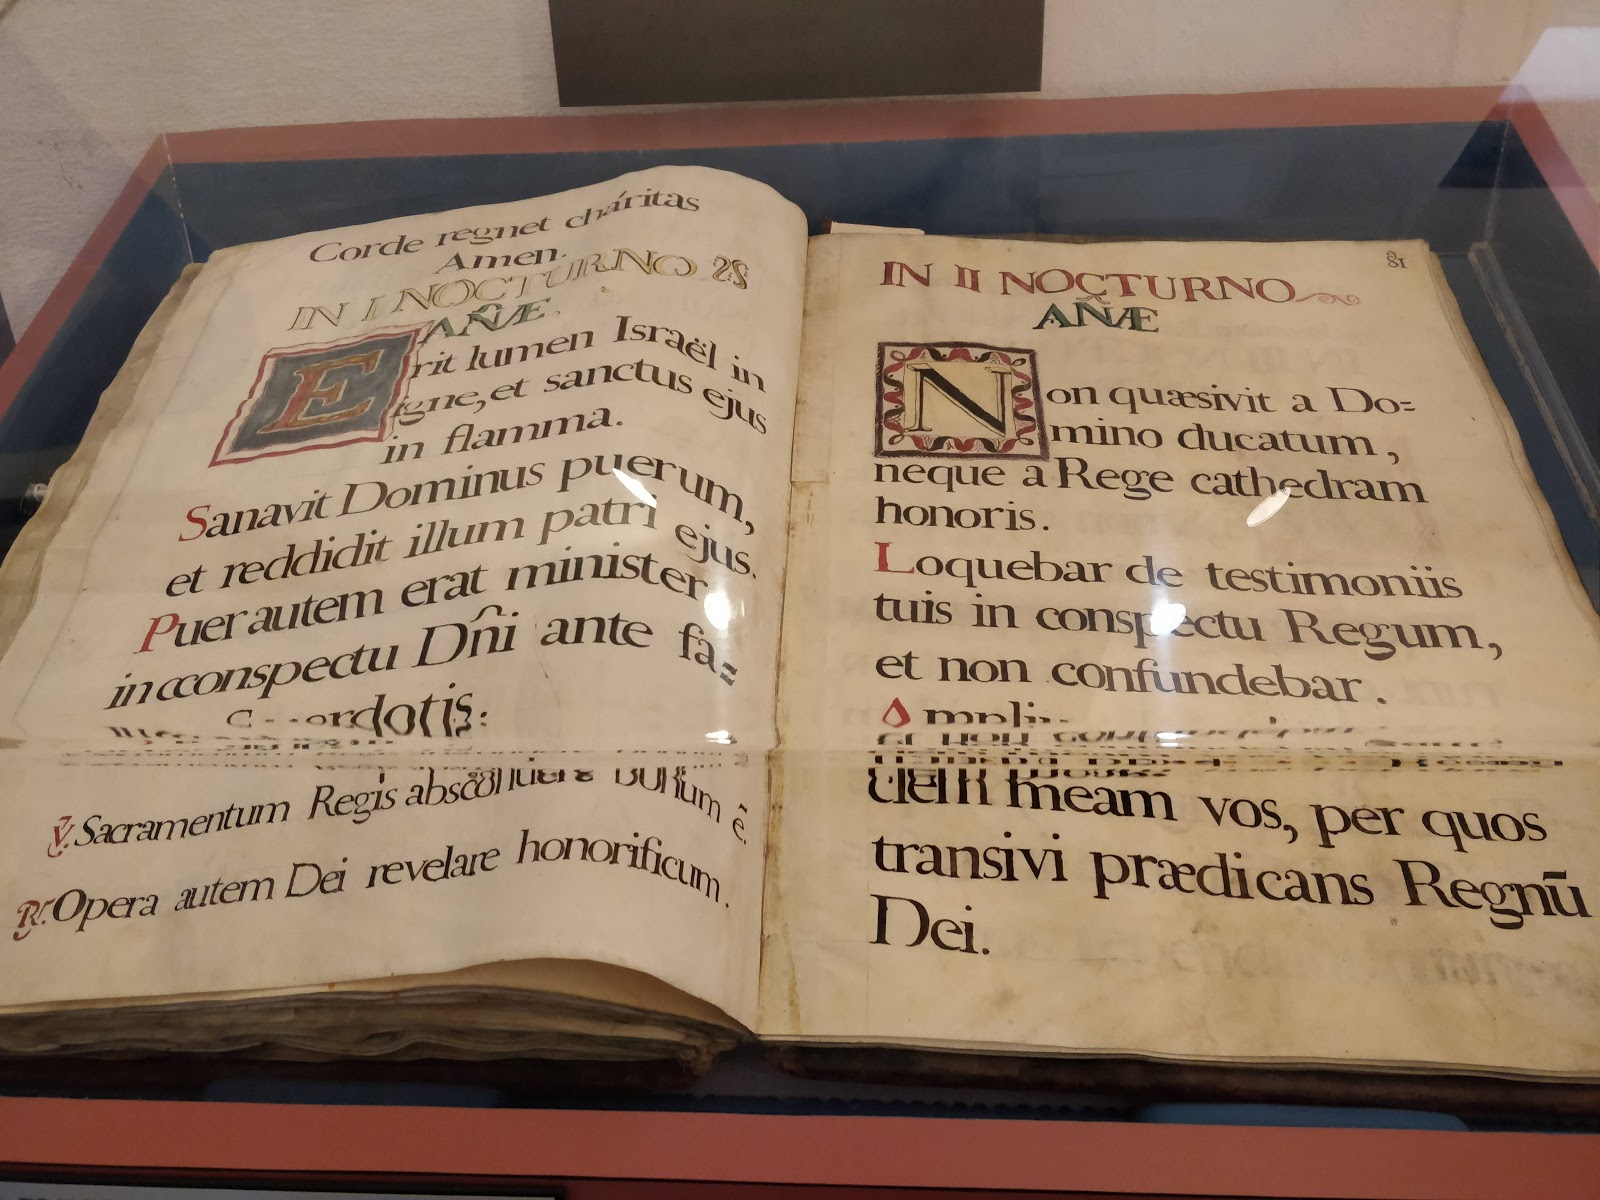 Corde regnet cháritas
Amen.
IN I NOCTURNO
AÑÆ.
Erit lumen Israël in
igne, et sanctus ejus
in flamma.
Sanavit Dominus puerum,
et reddidit illum patri ejus.
Puer autem erat minister
in cconspectu Dñi ante fa=
℣. Sacramentum Regis abscondere bonum ẽ.
℟. Opera autem Dei revelare honorificum.
81
IN II NOCTURNO
AÑÆ
Non quæsivit a Do=
mino ducatum,
neque a Rege cathedram
honoris.
Loquebar de testimoniis
tuis in conspectu Regum,
et non confundebar.
ciem meam vos, per quos
transivi prædicans Regnū
Dei.